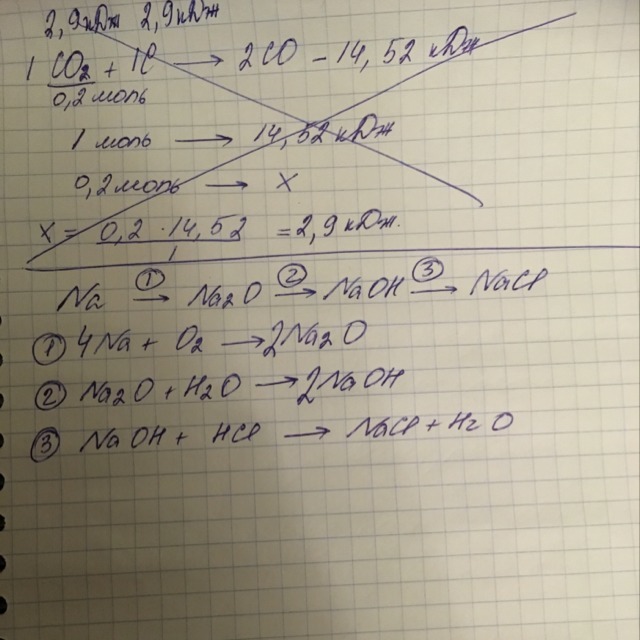 2,9 кДж 2,9 кДж
1 CO₂ + 1C → 2CO – 14,52 кДж
0,2 моль
1 моль → 14,52 кДж
0,2 моль → x
x = 0,2 · 14,52 / 1 = 2,9 кДж.
Na ①→ Na₂O ②→ NaOH ③→ NaCl
① 4Na + O₂ → 2Na₂O
② Na₂O + H₂O → 2NaOH
③ NaOH + HCl → NaCl + H₂O